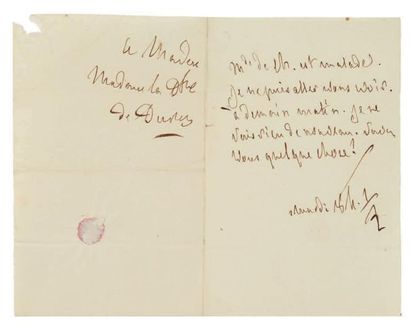 a Madame
Madame la Dsse
de Duras
Mde de Ch. est malade.
je ne puis aller vous voir.
à demain matin. je ne
sais rien de nouveau. Savez
vous quelque chose?
mardi 3 h. 1/2